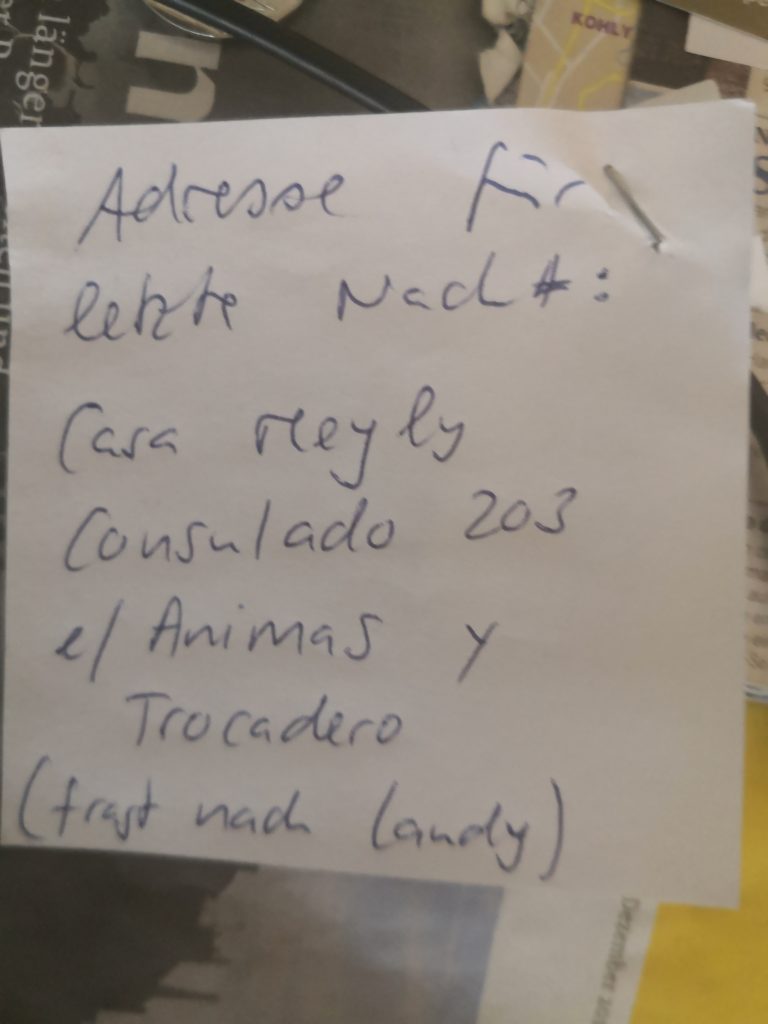 KOHLY
länger
n
Adresse für
letzte Nacht:
Casa Heyly
Consulado 203
e/ Animas y
Trocadero
(fragt nach Candy)